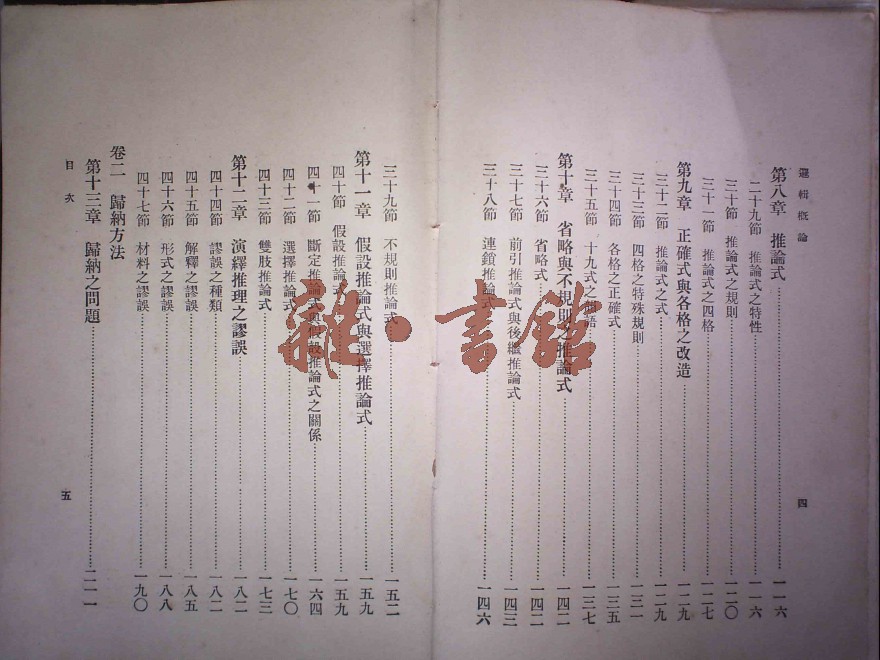 邏輯概論
第八章 推論式……一一六
二十九節 推論式之特性……一一六
三十節 推論式之規則……一二〇
三十一節 推論式之四格……一二七
第九章 正確式與各格之改造……一二九
三十二節 推論式之式……一二九
三十三節 四格之特殊規則……一三一
三十四節 各格之正確式……一三五
三十五節 十九式之 語……一三七
第十章 省略與不規則之推論式……一四二
三十六節 省略式……一四二
三十七節 前引推論式與後繼推論式……一四三
三十八節 連鎖推論式……一四六
四
三十九節 不規則推論式……一五二
第十一章 假設推論式與選擇推論式……一五九
四十節 假設推論式……一五九
四十一節 斷定推論式與假設推論式之關係……一六四
四十二節 選擇推論式……一七〇
四十三節 雙肢推論式……一七三
第十二章 演繹推理之謬誤……一八二
四十四節 謬誤之種類……一八二
四十五節 解釋之謬誤……一八五
四十六節 形式之謬誤……一八八
四十七節 材料之謬誤……一九〇
卷二 歸納方法
第十三章 歸納之問題……二一一
目次
五
雜·書館